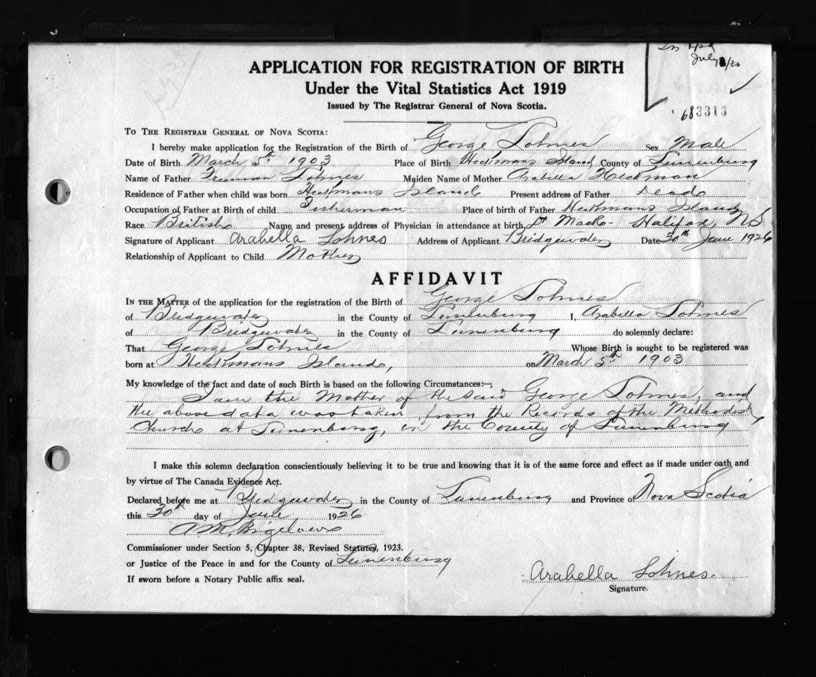 In
July
683313
APPLICATION FOR REGISTRATION OF BIRTH
Under the Vital Statistics Act 1919
Issued by The Registrar General of Nova Scotia.
TO THE REGISTRAR GENERAL OF NOVA SCOTIA:
I hereby make application for the Registration of the Birth of George Lohnes Sex Male
Date of Birth March 5th 1903 Place of Birth Heckmans Island County of Lunenburg
Name of Father Freeman Lohnes Maiden Name of Mother Arabella Heckman
Residence of Father when child was born Heckmans Island Present address of Father Dead
Occupation of Father at Birth of child Fisherman Place of birth of Father Heckmans Island
Race British Name and present address of Physician in attendance at birth Halifax, N.S.
Signature of Applicant Arabella Lohnes Address of Applicant Bridgewater Date 30th June 1926
Relationship of Applicant to Child Mother
AFFIDAVIT
IN THE MATTER of the application for the registration of the Birth of George Lohnes
of Bridgewater in the County of Lunenburg I, Arabella Lohnes
of Bridgewater in the County of Lunenburg do solemnly declare:
That George Lohnes Whose Birth is sought to be registered was
born at Heckmans Island, on March 5th 1903
My knowledge of the fact and date of such Birth is based on the following Circumstances:—
I am the Mother of the said George Lohnes, and
the above data was taken from the Records of the Methodist
Church at Lunenburg, in the County of Lunenburg
I make this solemn declaration conscientiously believing it to be true and knowing that it is of the same force and effect as if made under oath and
by virtue of The Canada Evidence Act.
Declared before me at Bridgewater in the County of Lunenburg and Province of Nova Scotia
this 30th day of June 1926
Commissioner under Section 5, Chapter 38, Revised Statutes, 1923.
or Justice of the Peace in and for the County of Lunenburg
If sworn before a Notary Public affix seal.
Arabella Lohnes
Signature.